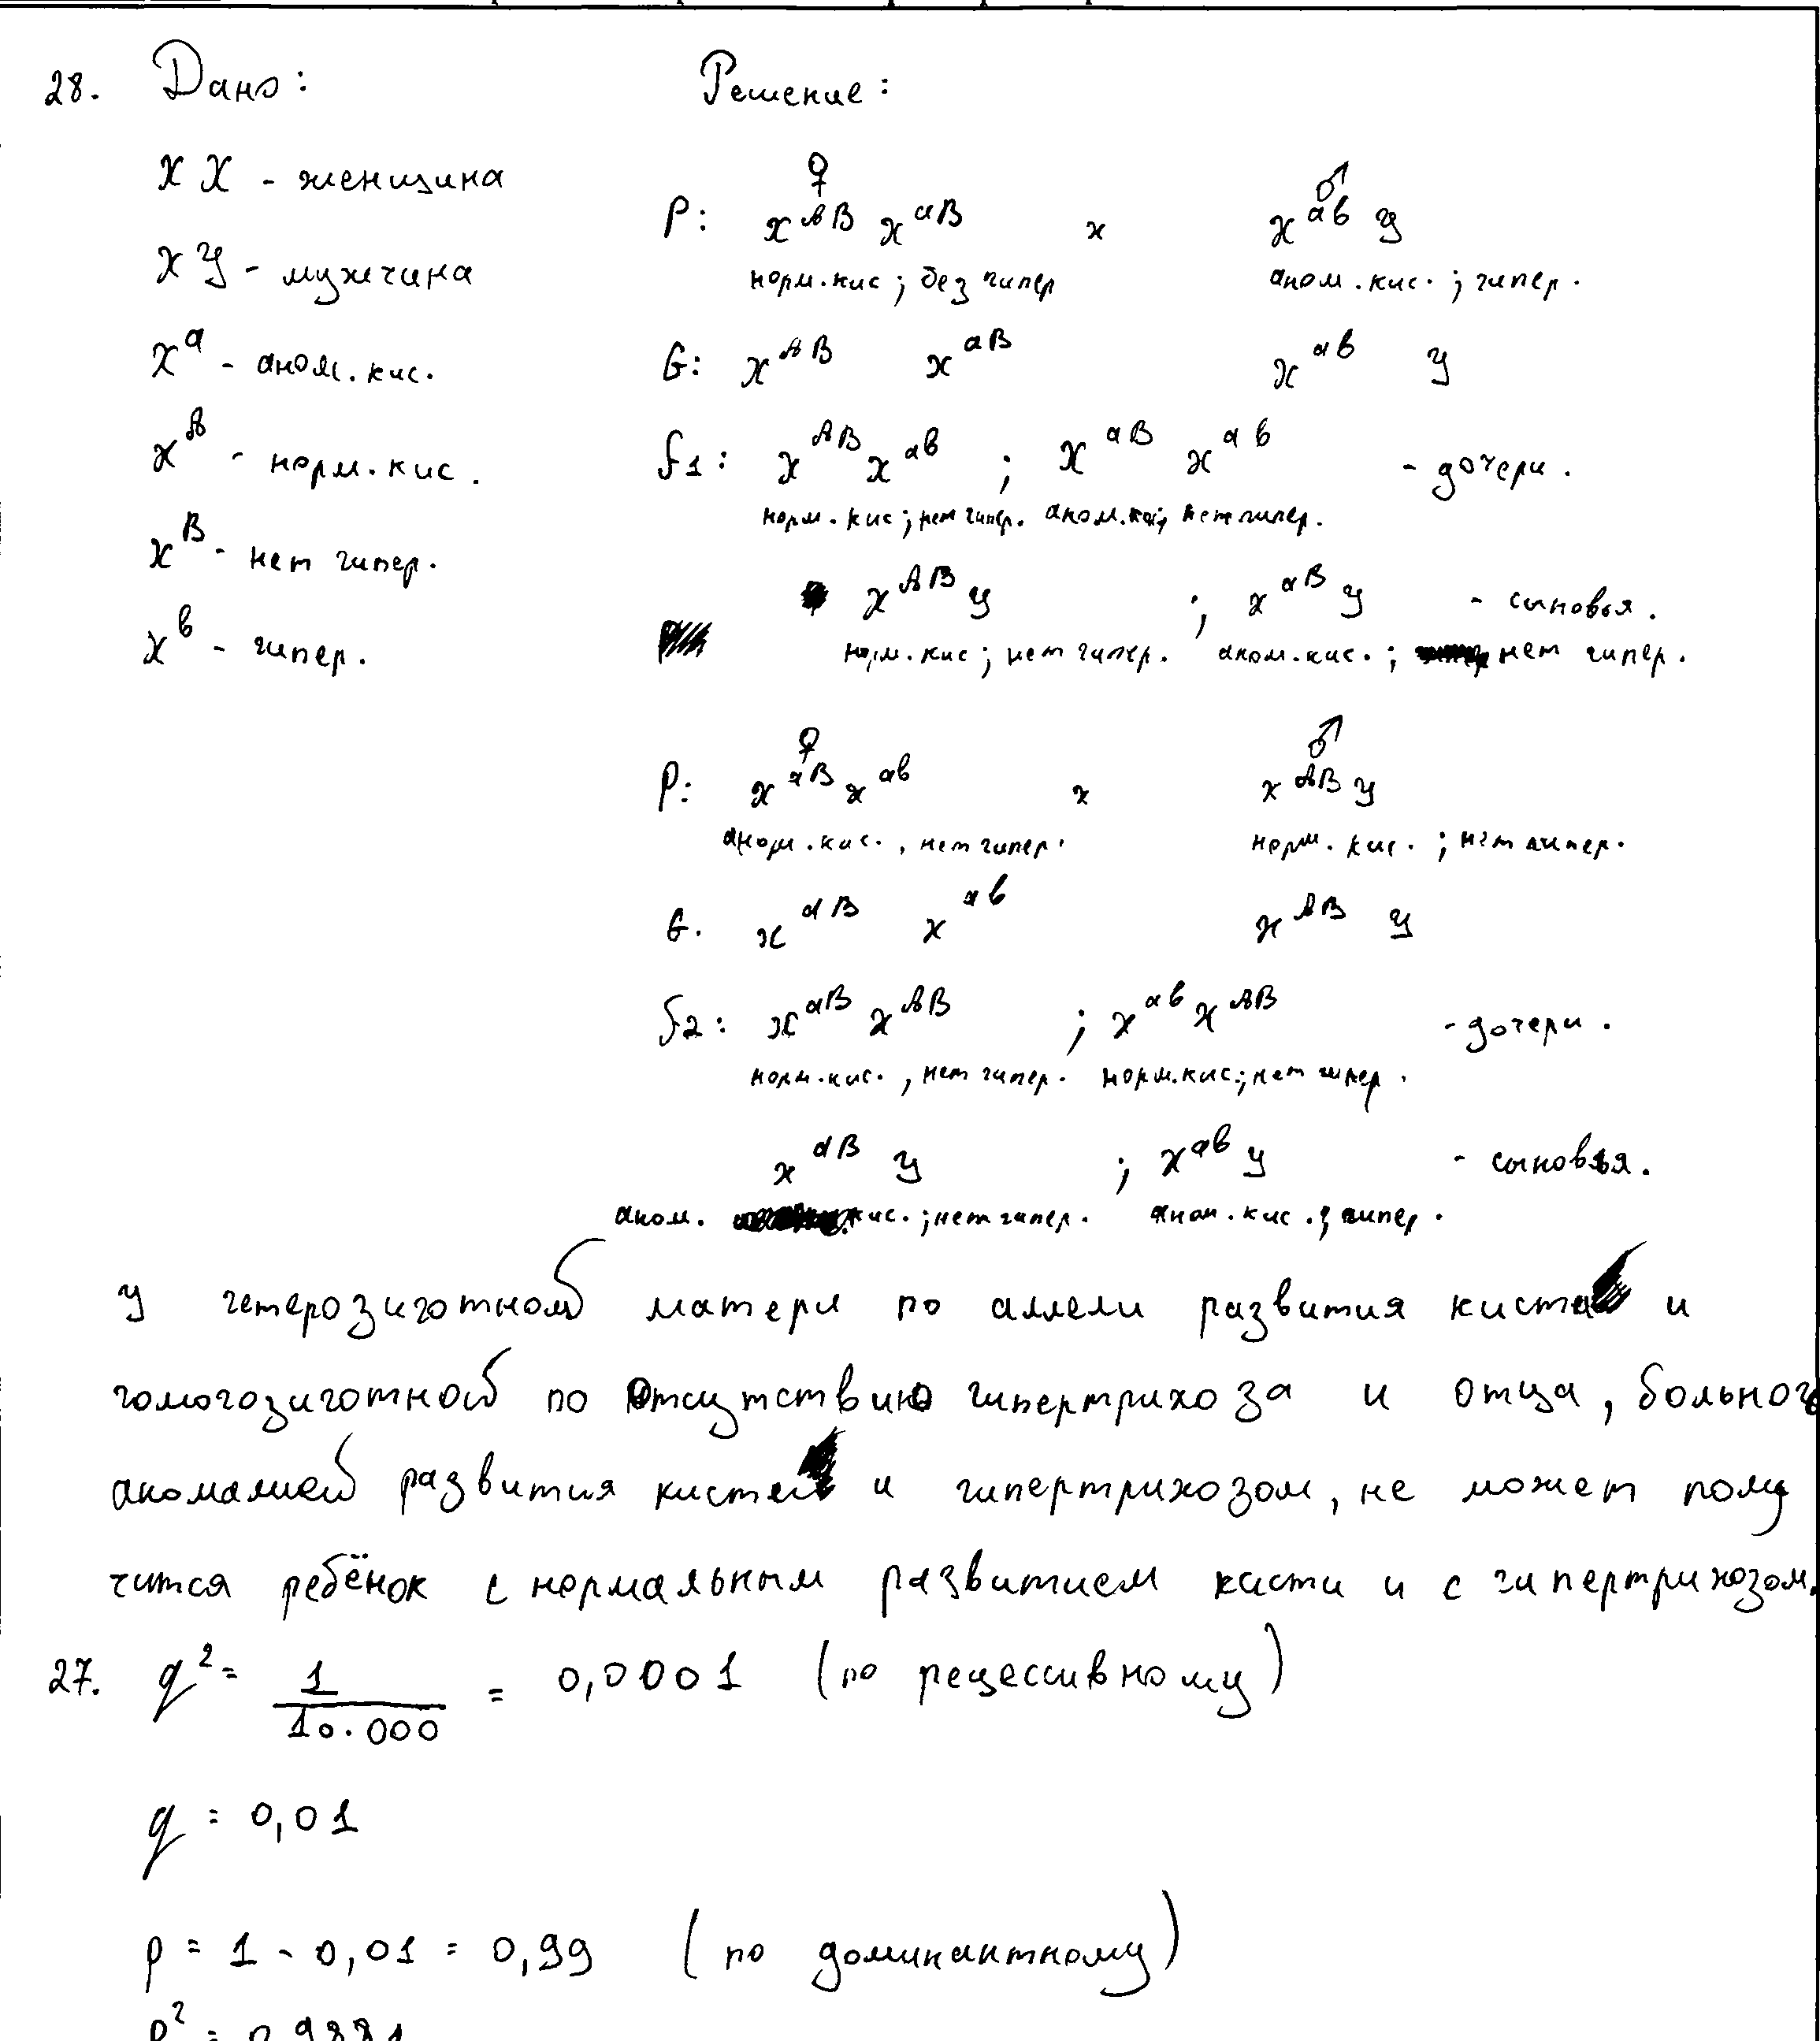 28. Дано: Решение:
XX - женщина ♀ ♂
P: X^AB X^aB x X^ab У
XУ - мужчина норм.кис; без гипер аном.кис.; гипер.
X^a - аном.кис. G: X^AB X^aB X^ab У
X^A - норм.кис. F1: X^AB X^ab ; X^aB X^ab - дочери.
норм.кис; нет гипер. аном.кис; нет гипер.
X^B - нет гипер.
X^AB У ; X^aB У - сыновья.
X^b - гипер. норм.кис; нет гипер. аном.кис.; нет гипер.
♀ ♂
P: X^aB X^ab x X^AB У
аном.кис., нет гипер. норм.кис.; нет гипер.
G. X^aB X^ab X^AB У
F2: X^aB X^AB ; X^ab X^AB - дочери.
норм.кис., нет гипер. норм.кис.; нет гипер.
X^aB У ; X^ab У - сыновья.
аном. кис.; нет гипер. аном.кис.; гипер.
У гетерозиготной матери по аллели развития кисти и
гомогозиготной по отсутствию гипертрихоза и отца, больного
аномалией развития кистей и гипертрихозом, не может полу
чится ребёнок с нормальным развитием кисти и с гипертрихозом.
27. q² = 1/10.000 = 0,0001 (по рецессивному)
q = 0,01
p = 1 - 0,01 = 0,99 (по доминантному)